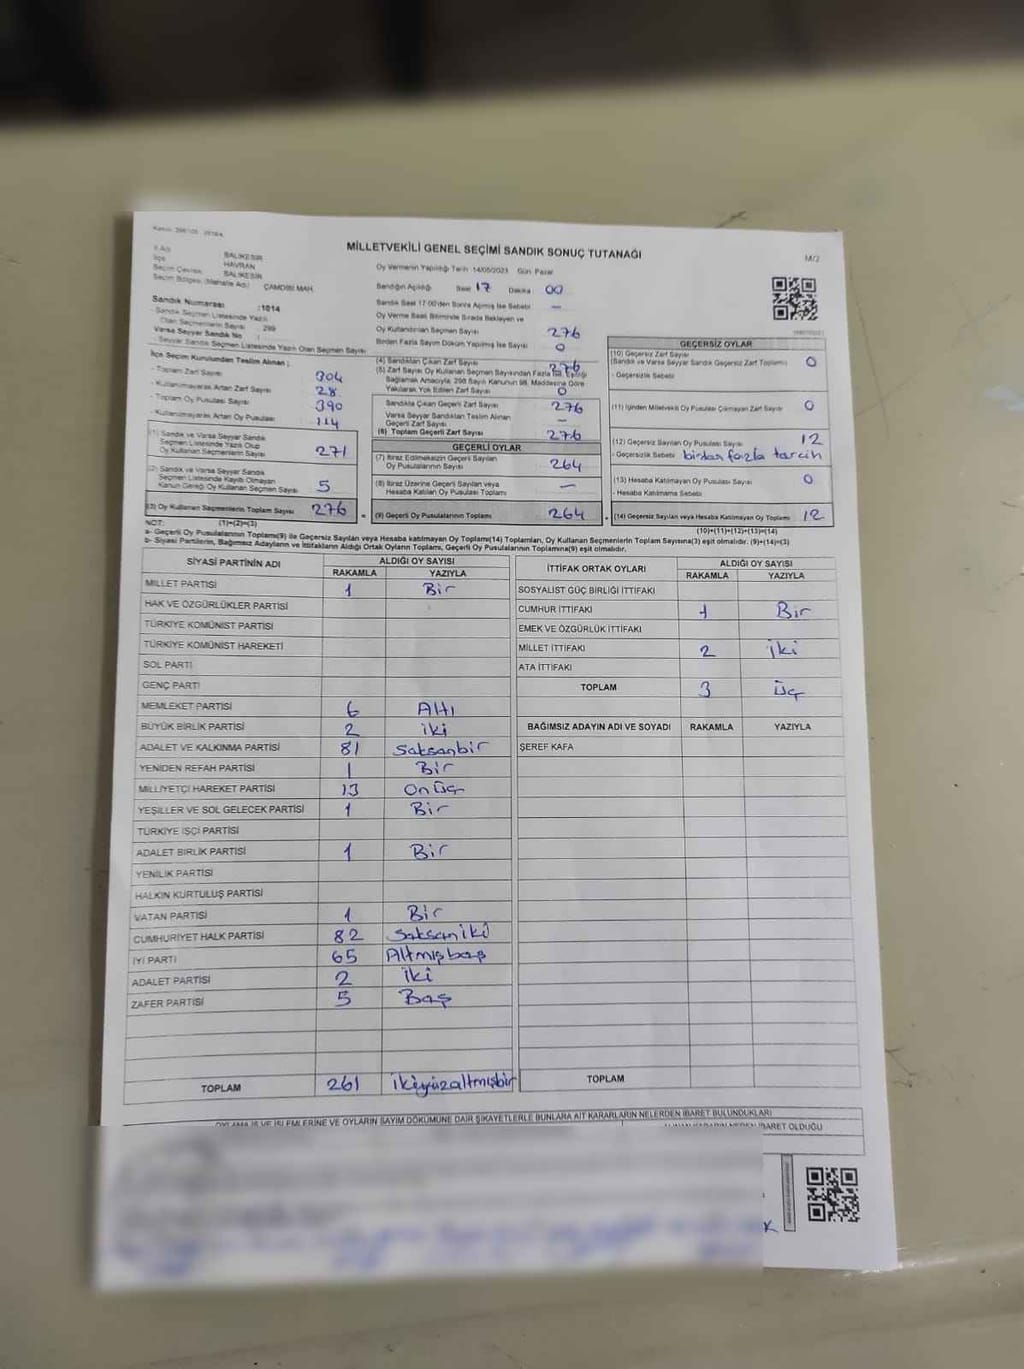 MİLLETVEKİLİ GENEL SEÇİMİ SANDIK SONUÇ TUTANAĞI
M/2
İl Adı BALIKESİR
İlçe HAVRAN
Seçim Çevresi BALIKESİR
Seçim Bölgesi (Mahalle Adı) ÇAMDİBİ MAH.
Oy Vermenin Yapıldığı Tarih 14/05/2023 Gün Pazar
Sandığın Açıldığı Saat 17 Dakika 00
Sandık Saat 17:00'den Sonra Açılmış İse Sebebi –
Oy Verme Saati Bitiminde Sırada Bekleyen ve
Oy Kullandırılan Seçmen Sayısı 276
Birden Fazla Sayım Döküm Yapılmış İse Sayısı 0
Sandık Numarası :1014
Sandık Seçmen Listesinde Yazılı
Olan Seçmenlerin Sayısı : 299
Varsa Seyyar Sandık No :
Seyyar Sandık Seçmen Listesinde Yazılı Olan Seçmen Sayısı
İlçe Seçim Kurulundan Teslim Alınan :
- Toplam Zarf Sayısı 304
- Kullanılmayarak Artan Zarf Sayısı 28
- Toplam Oy Pusulası Sayısı 390
- Kullanılmayarak Artan Oy Pusulası 114
(1) Sandık ve Varsa Seyyar Sandık
Seçmen Listesinde Yazılı Olup
Oy Kullanan Seçmenlerin Sayısı 271
(2) Sandık ve Varsa Seyyar Sandık
Seçmen Listesinde Kayıtlı Olmayan
Kanun Gereği Oy Kullanan Seçmen Sayısı 5
(3) Oy Kullanan Seçmenlerin Toplam Sayısı 276
(4) Sandıktan Çıkan Zarf Sayısı 276
(5) Zarf Sayısı Oy Kullanan Seçmen Sayısından Fazla İse, Eşitliği
Sağlamak Amacıyla, 298 Sayılı Kanunun 98. Maddesine Göre
Yakılarak Yok Edilen Zarf Sayısı 0
Sandıkta Çıkan Geçerli Zarf Sayısı 276
Varsa Seyyar Sandıktan Teslim Alınan
Geçerli Zarf Sayısı –
(6) Toplam Geçerli Zarf Sayısı 276
GEÇERLİ OYLAR
(7) İtiraz Edilmeksizin Geçerli Sayılan
Oy Pusulalarının Sayısı 264
(8) İtiraz Üzerine Geçerli Sayılan veya
Hesaba Katılan Oy Pusulası Toplamı –
(9) Geçerli Oy Pusulalarının Toplamı 264
GEÇERSİZ OYLAR
(10) Geçersiz Zarf Sayısı
(Sandık ve Varsa Seyyar Sandık Geçersiz Zarf Toplamı) 0
- Geçersizlik Sebebi
(11) İçinden Milletvekili Oy Pusulası Çıkmayan Zarf Sayısı 0
(12) Geçersiz Sayılan Oy Pusulası Sayısı 12
- Geçersizlik Sebebi birdan fazla tarcih
(13) Hesaba Katılmayan Oy Pusulası Sayısı 0
- Hesaba Katılmama Sebebi
(14) Geçersiz Sayılan veya Hesaba Katılmayan Oy Toplamı 12
NOT: (1)+(2)=(3) (10)+(11)+(12)+(13)=(14)
a- Geçerli Oy Pusulalarının Toplamı(9) ile Geçersiz Sayılan veya Hesaba katılmayan Oy Toplamı(14) Toplamları, Oy Kullanan Seçmenlerin Toplam Sayısına(3) eşit olmalıdır. (9)+(14)=(3)
b- Siyasi Partilerin, Bağımsız Adayların ve İttifakların Aldığı Ortak Oyların Toplamı, Geçerli Oy Pusulalarının Toplamına(9) eşit olmalıdır.
SİYASİ PARTİNİN ADI ALDIĞI OY SAYISI
RAKAMLA YAZIYLA
MİLLET PARTİSİ 1 Bir
HAK VE ÖZGÜRLÜKLER PARTİSİ
TÜRKİYE KOMÜNİST PARTİSİ
TÜRKİYE KOMÜNİST HAREKETİ
SOL PARTİ
GENÇ PARTİ
MEMLEKET PARTİSİ 6 Altı
BÜYÜK BİRLİK PARTİSİ 2 iki
ADALET VE KALKINMA PARTİSİ 81 Saksanbir
YENİDEN REFAH PARTİSİ 1 Bir
MİLLİYETÇİ HAREKET PARTİSİ 13 Onüç
YEŞİLLER VE SOL GELECEK PARTİSİ 1 Bir
TÜRKİYE İŞÇİ PARTİSİ
ADALET BİRLİK PARTİSİ 1 Bir
YENİLİK PARTİSİ
HALKIN KURTULUŞ PARTİSİ
VATAN PARTİSİ 1 Bir
CUMHURİYET HALK PARTİSİ 82 Saksaniki
İYİ PARTİ 65 Altmışbaş
ADALET PARTİSİ 2 iki
ZAFER PARTİSİ 5 Baş
TOPLAM 261 ikiyüzaltmışbir
İTTİFAK ORTAK OYLARI ALDIĞI OY SAYISI
RAKAMLA YAZIYLA
SOSYALİST GÜÇ BİRLİĞİ İTTİFAKI
CUMHUR İTTİFAKI 1 Bir
EMEK VE ÖZGÜRLÜK İTTİFAKI
MİLLET İTTİFAKI 2 iki
ATA İTTİFAKI
TOPLAM 3 üç
BAĞIMSIZ ADAYIN ADI VE SOYADI RAKAMLA YAZIYLA
ŞEREF KAFA
TOPLAM
OYLAMA İŞ VE İŞLEMLERİNE VE OYLARIN SAYIM DÖKÜMÜNE DAİR ŞİKAYETLERLE BUNLARA AİT KARARLARIN NELERDEN İBARET BULUNDUKLARI
ALINAN KARARIN NEDEN İBARET OLDUĞU